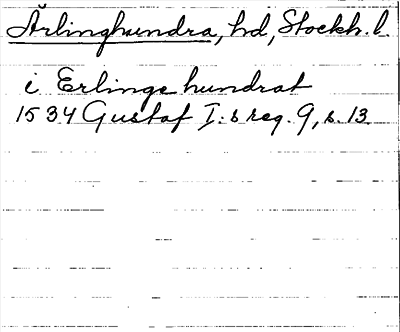 Ärlinghundra, hd, Stockh. l.
i Erlinge hundrat
1534 Gustaf I:s reg. 9, s. 13